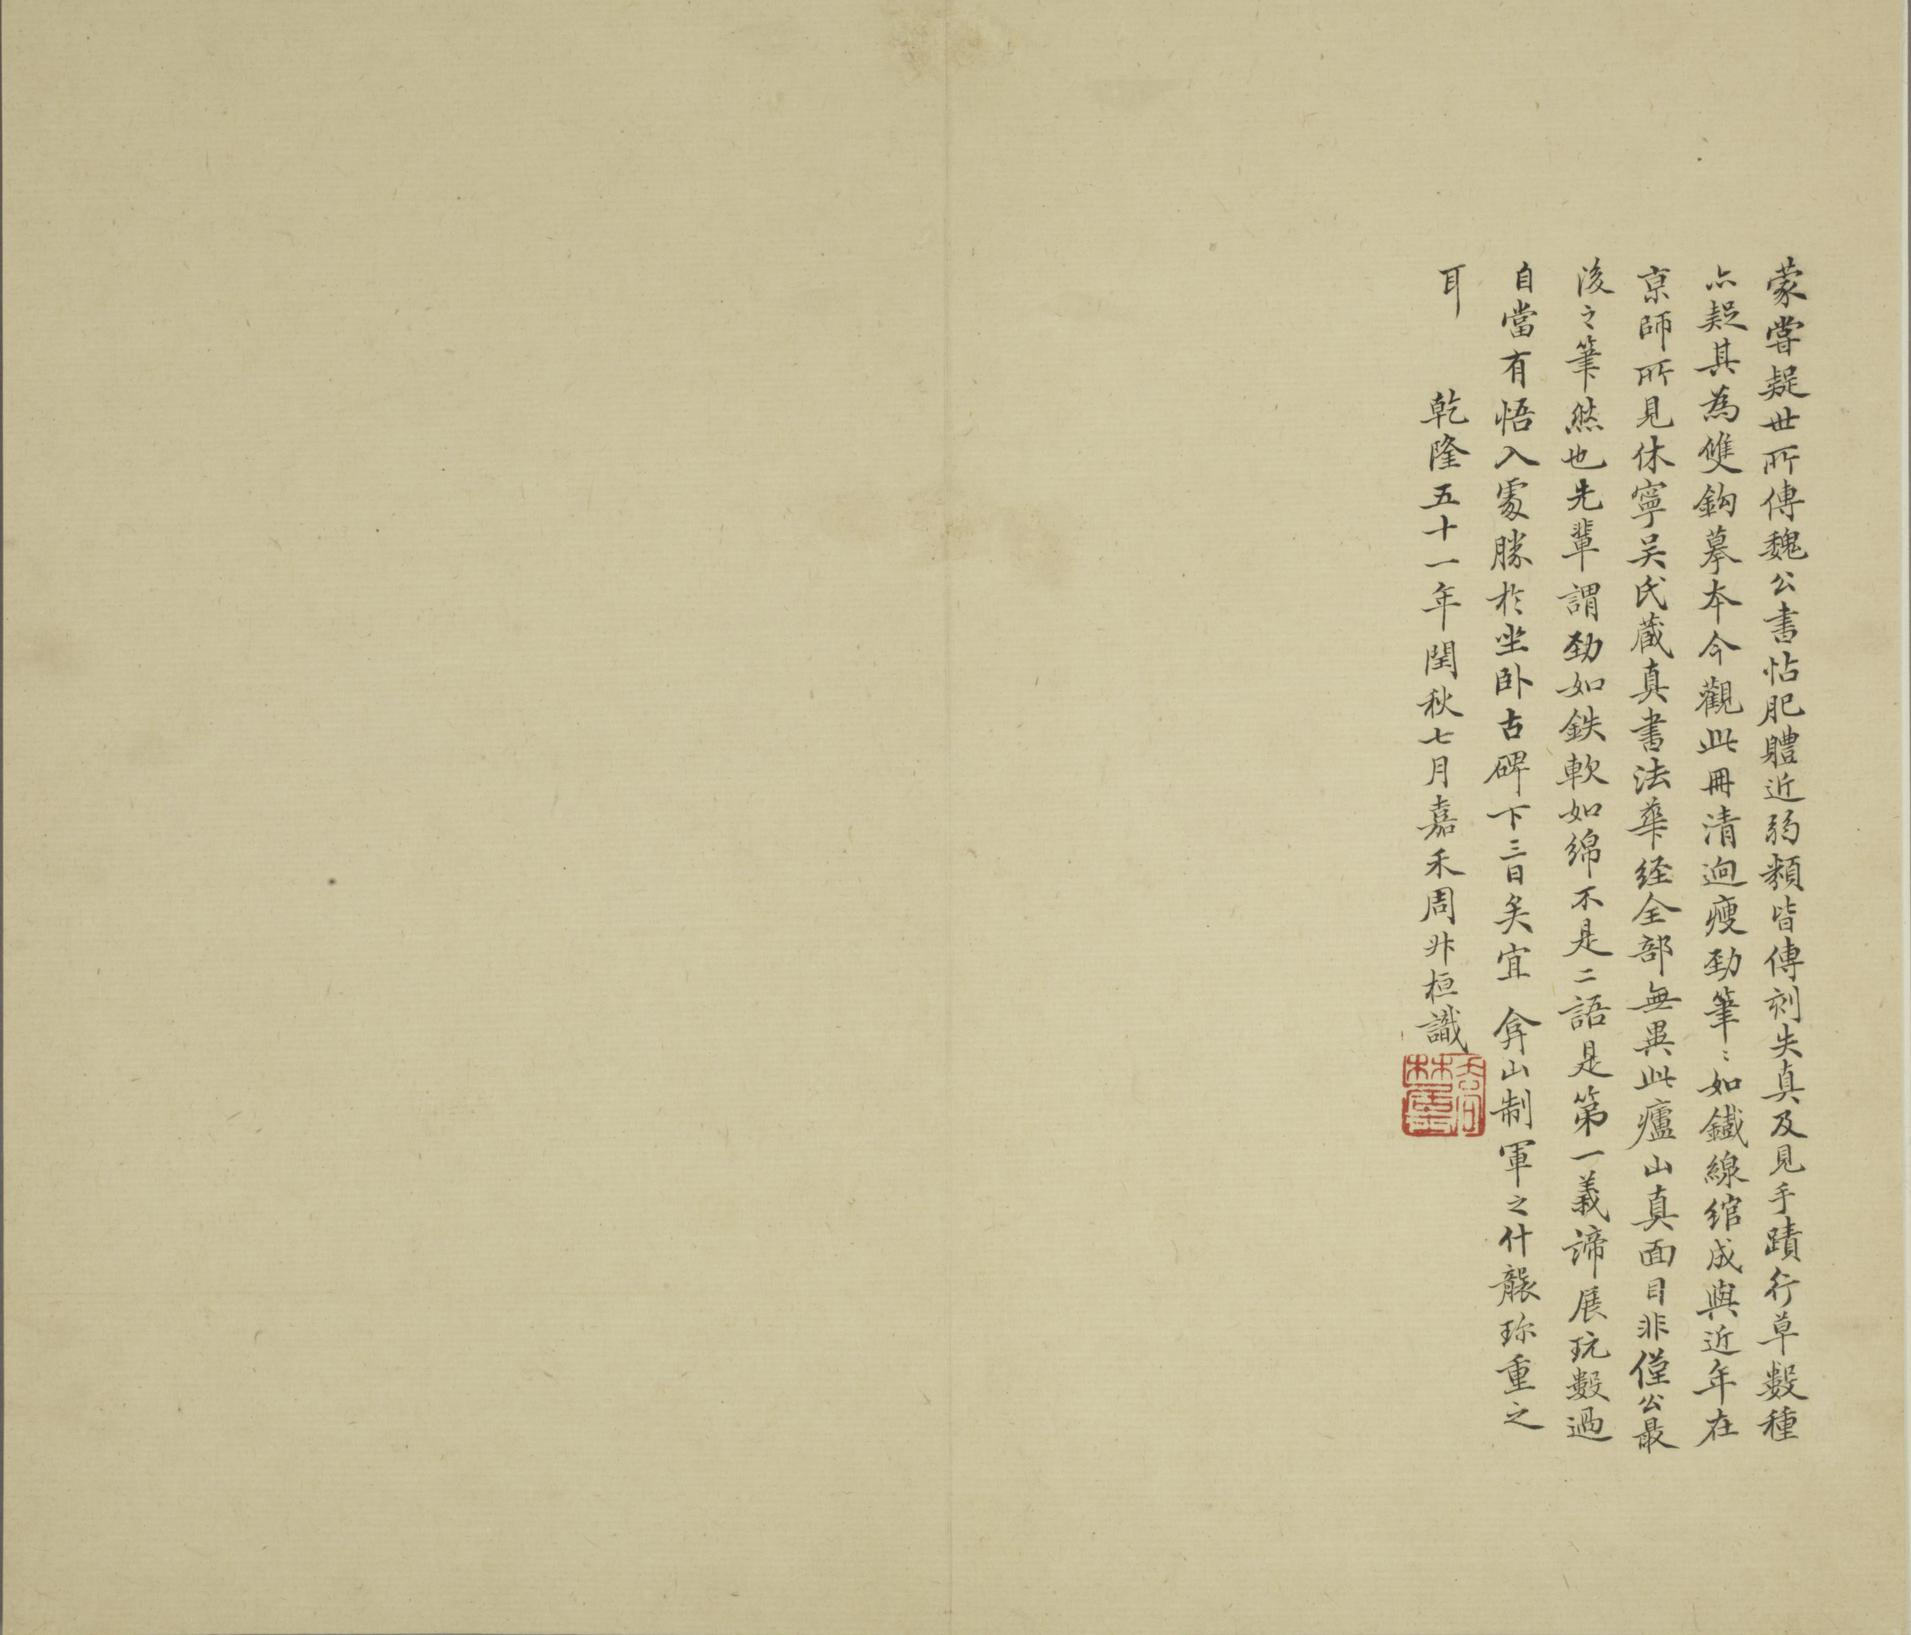 蒙嘗疑世所傳魏公書帖肥體近弱類皆傳刻失真及見手蹟行草數種
亦疑其為雙鈎摹本今觀此冊清迥瘦勁筆〻如鐵線綰成與近年在
京師所見休寧吴氏蔵真書法華经全部無異此廬山真面目非僅公最
後之筆然也先輩謂勁如鉄軟如綿不是二語是第一義諦展玩數過
自當有悟入處勝於坐卧古碑下三日矣宜 弇山制軍之什襲珎重之
耳
乾隆五十一年閏秋七月嘉禾周升桓識